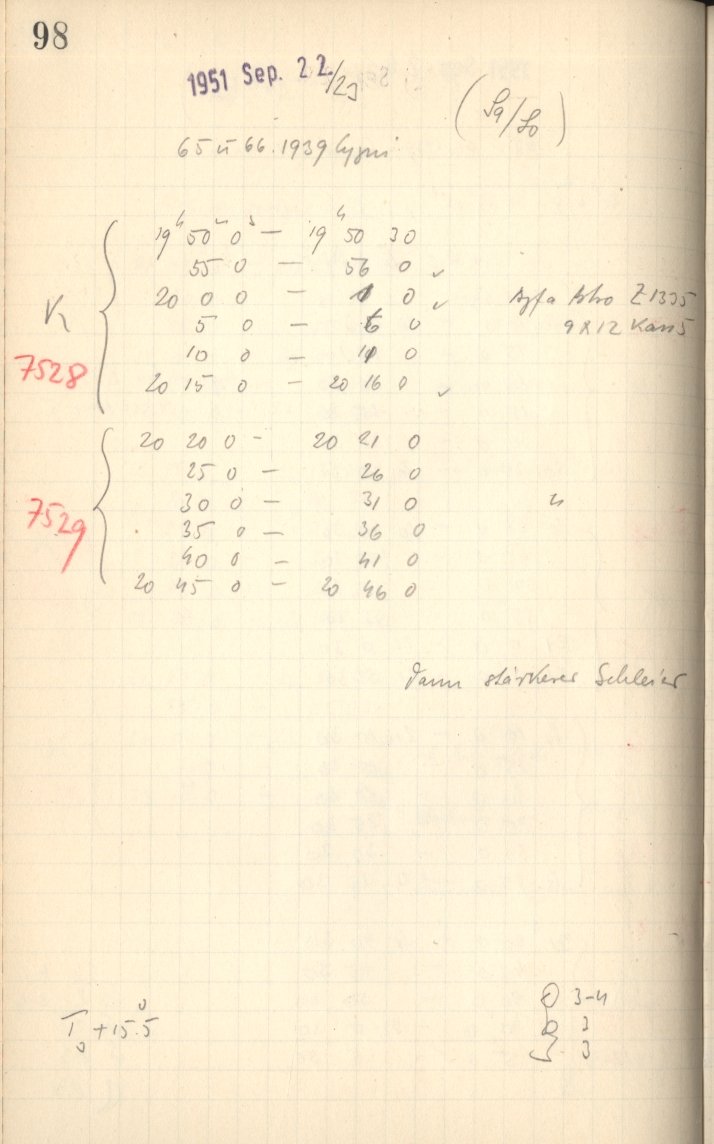 98
1951 Sep. 22./23
(Sa/So)
65 u 66.1939 Cygni
19ʰ 50ᵐ 0ˢ — 19ʰ 50 30
55 0 — 56 0 ✓
20 0 0 — 1 0 ✓ Agfa Astro Z 1335
5 0 — 6 0 9x12 Kass 5
K
10 0 — 11 0
7528
20 15 0 — 20 16 0 ✓
20 20 0 - 20 21 0
25 0 — 26 0
30 0 — 31 0 "
7529
35 0 — 36 0
40 0 — 41 0
20 45 0 — 20 46 0
Dann stärkerer Schleier
3-4
T + 15.5° 3
3